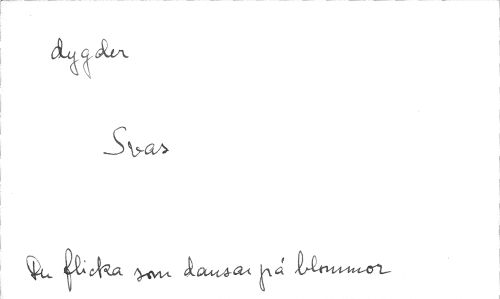 dygder
Svar
Du flicka som dansar på blommor